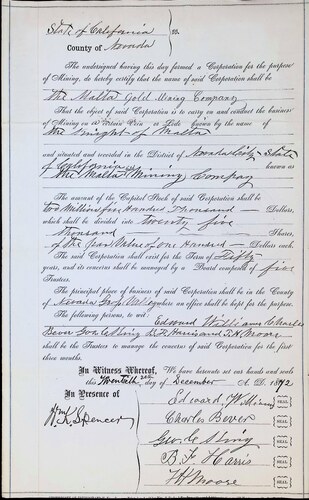 State of California } ss.
County of Nevada
The undersigned having this day formed a Corporation for the purpose
of Mining, do hereby certify that the name of said Corporation shall be
The Malta Gold Mining Company
That the object of said Corporation is to carry on and conduct the business
of Mining on a certain Vein or Lode known by the name of
The Knight of Malta
and situated and recorded in the District of Nevada City State
of California known as
the Malta Mining Company
The amount of the Capital Stock of said Corporation shall be
two Million five hundred Thousand Dollars,
which shall be divided into twenty five
thousand Shares,
of the par Value of one hundred Dollars each.
The said Corporation shall exist for the Term of Fifty
years, and its concerns shall be managed by a Board composed of five
Trustees.
The principal place of business of said Corporation shall be in the County of
Nevada where an office shall be kept for the purpose.
The following persons, to wit: Edward Williams Charles
Bever Geo. C. King B. F. Harris and F. H. Moore
shall be the Trustees to manage the concerns of said Corporation for the first
three months.
In Witness Whereof, We have hereunto set our hands and seals
this Twentieth 20th day of December A. D. 1892
In Presence of
Edward Williams SEAL
Wm. K. Spencer
Charles Bever SEAL
Geo. C. King SEAL
B. F. Harris SEAL
F. H. Moore SEAL